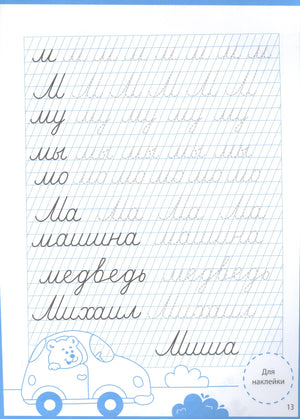 м м м м м м м м
М М М М М М М
му му му му му му
мы мы мы мы мы
мо мо мо мо мо мо
Ма Ма Ма Ма
машина машина
медведь медведь
Михаил Михаил
Миша
Для
наклейки
13